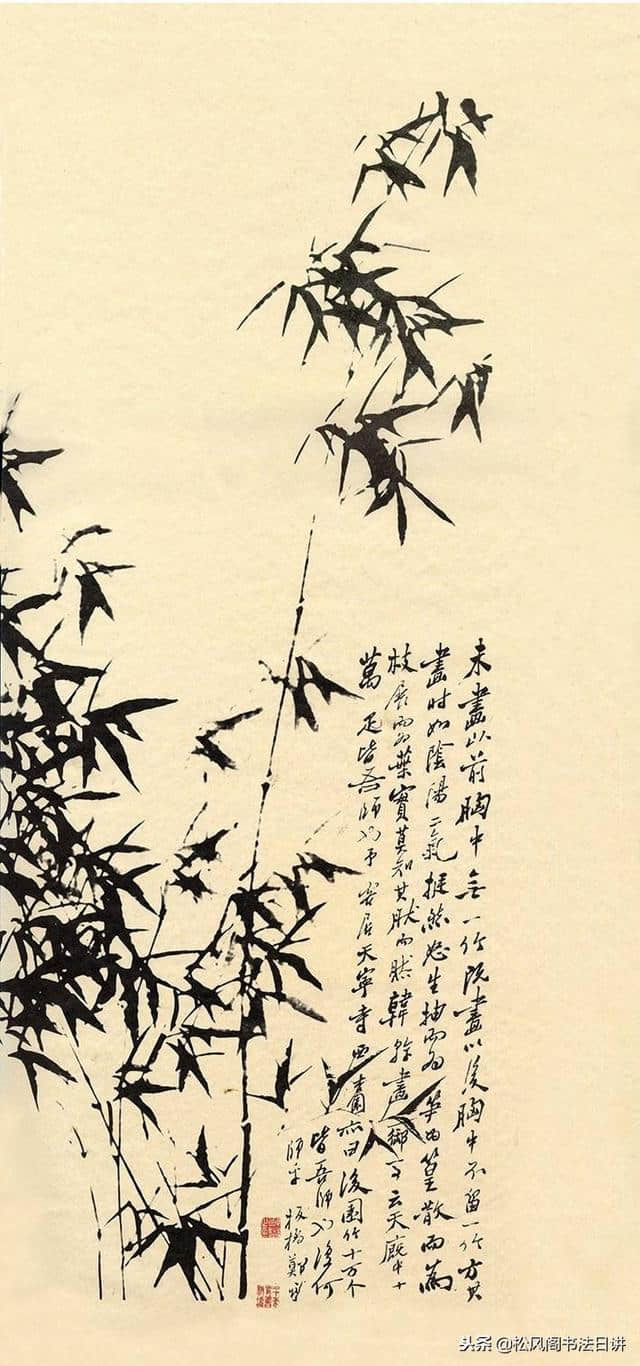 未畫以前胸中無一竹既畫以後胸中不留一竹方其
畫時如陰陽二氣挺然怒生抽而為筍為篁散而為
枝展而為葉實莫知其然而然韓幹畫御馬云天廐中十
萬疋皆吾師也予客居天寧寺西杏園亦曰後園竹十万个
皆吾師也復何
師乎 板橋鄭燮
头条 @松风阁书法日讲